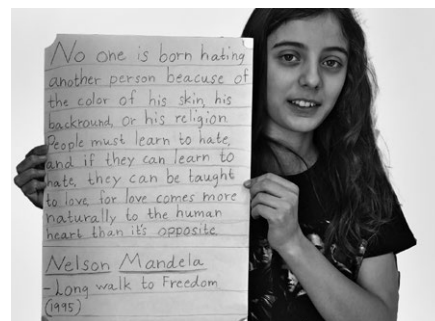 No one is born hating
another person beacuse of
the color of his skin, his
backround, or his religion
People must learn to hate,
and if they can learn to
hate, they can be taught
to love, for love comes more
naturally to the human
heart than it's opposite.
Nelson Mandela
-Long walk to Freedom
(1995)